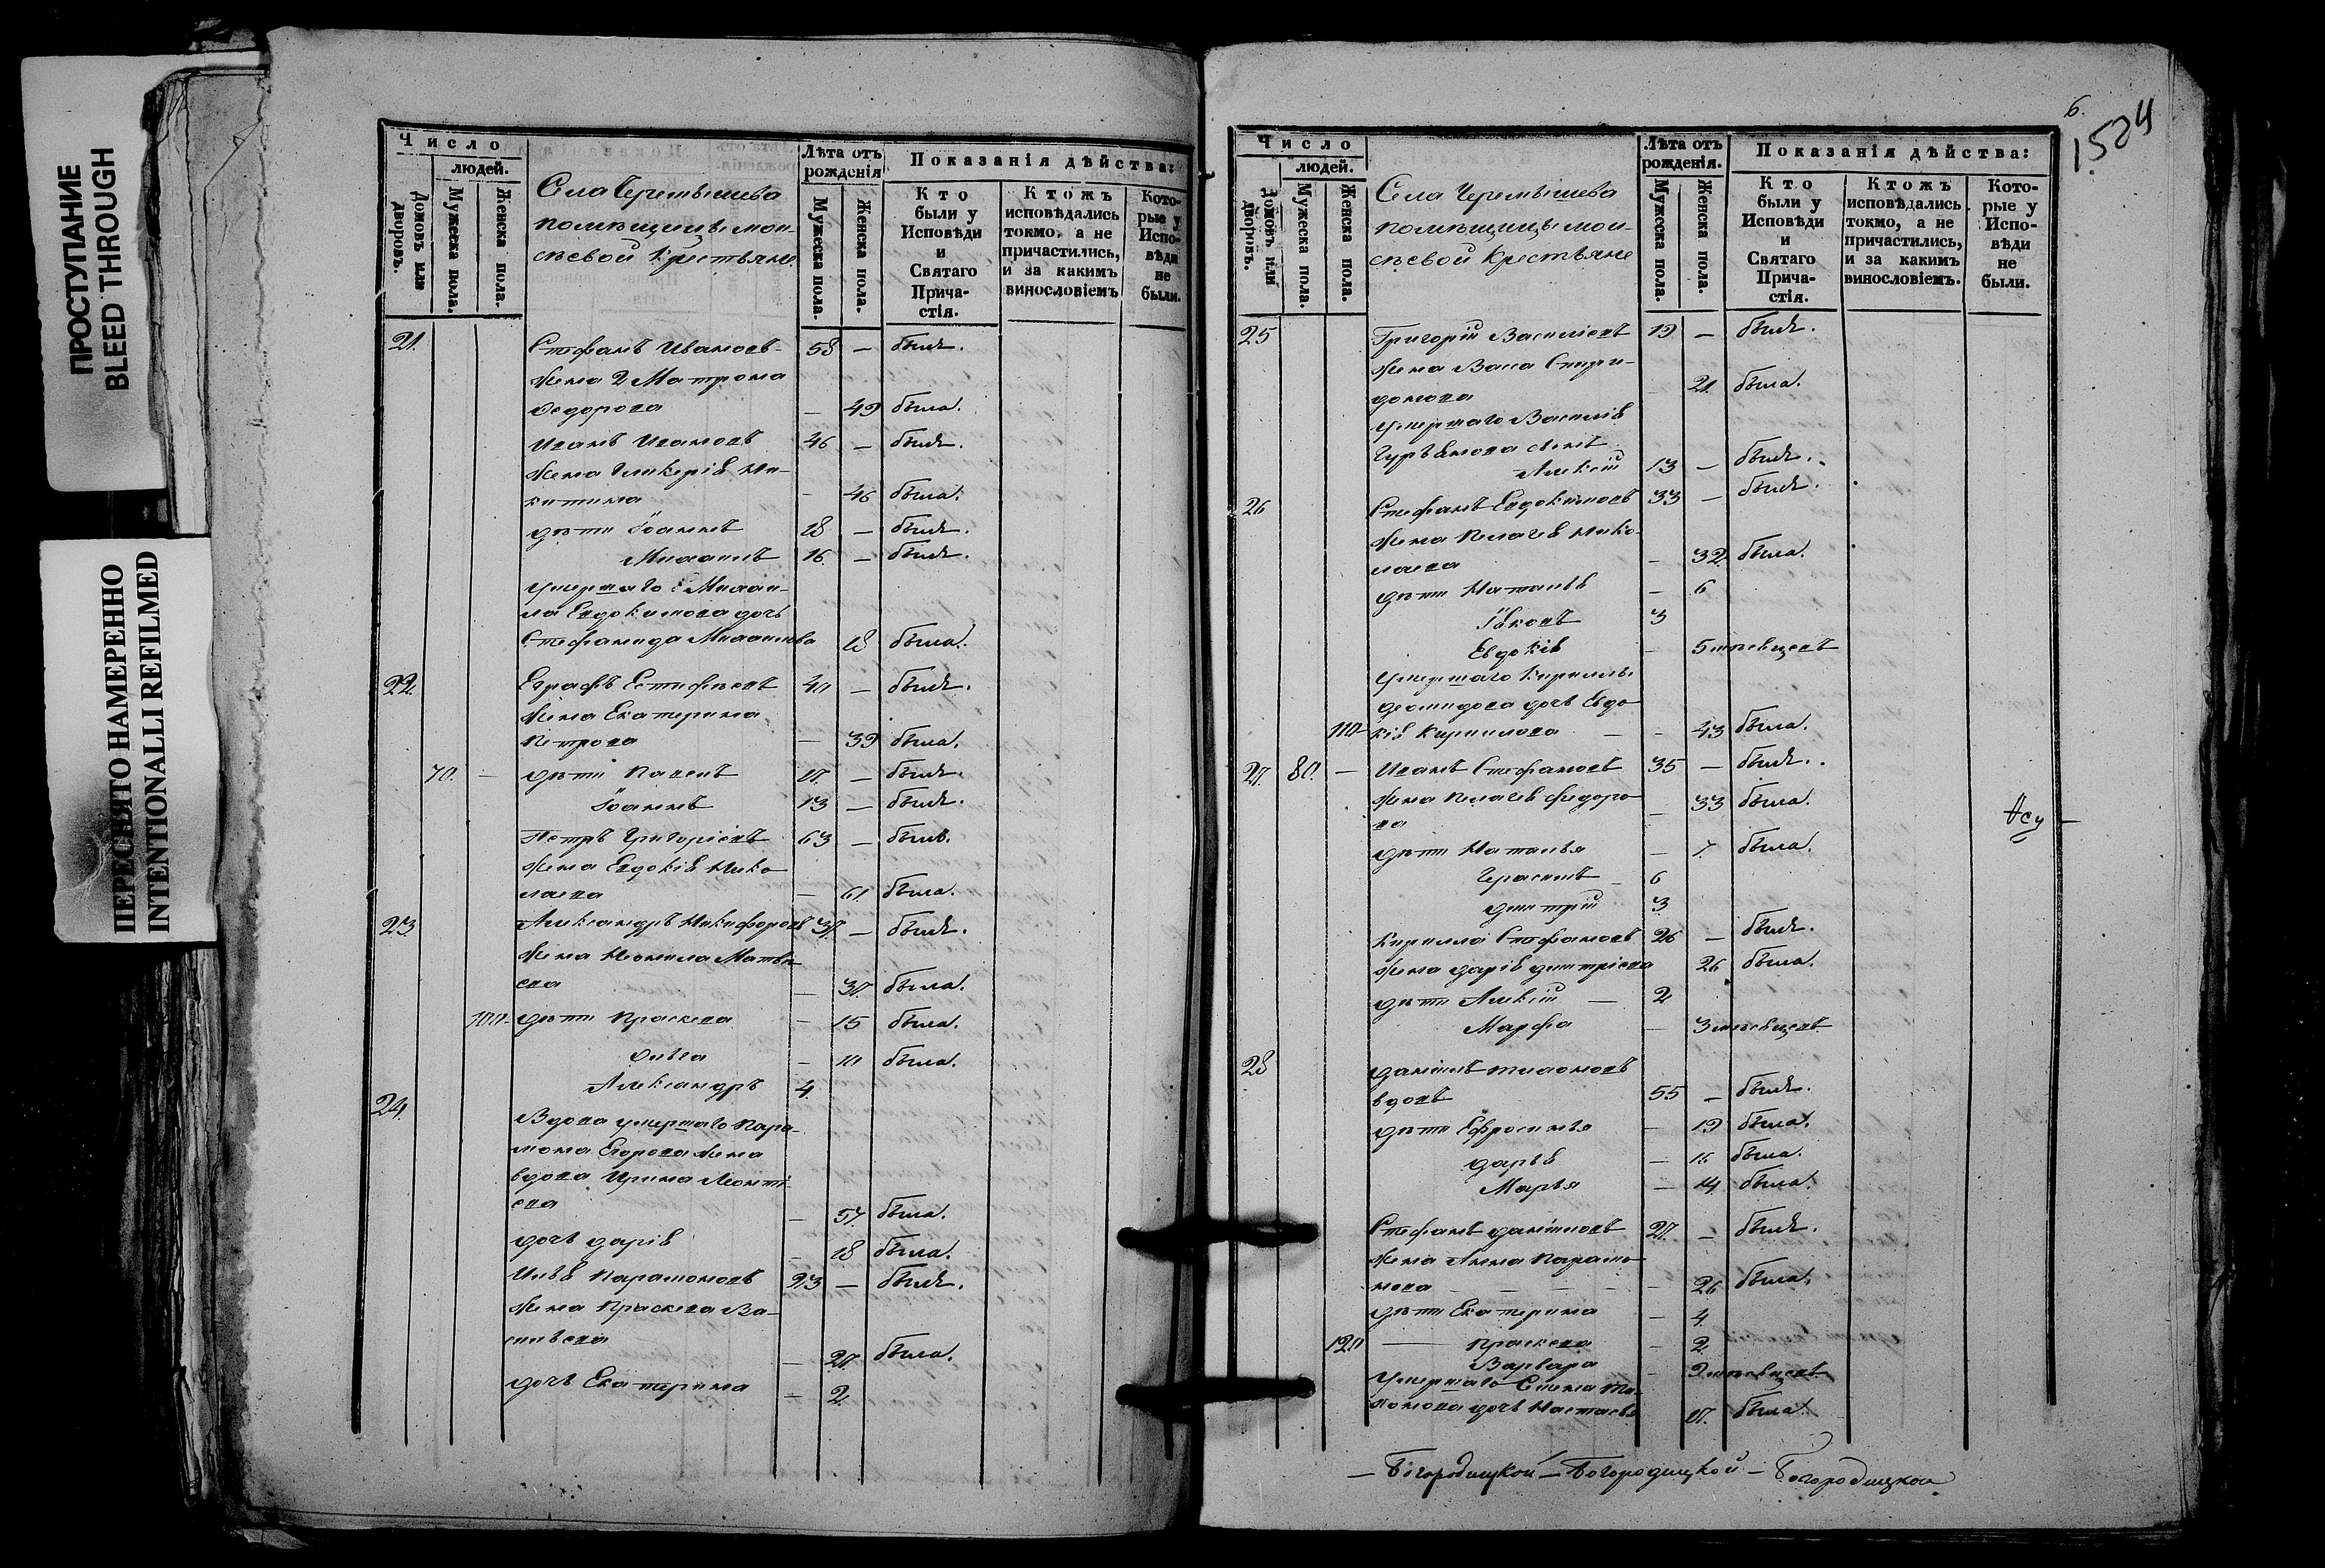 ПРОСТУПАНИЕ
BLEED THROUGH
ПЕРЕСНЯТО НАМЕРЕННО
INTENTIONALLI REFILMED
Число
людей.
Домовъ или дворовъ.
Мужеска пола.
Женска пола.
Села Черемышева
помѣщицы мои-
сѣевой Крестьяне
Лѣта отъ
рожденія
Мужеска пола.
Женска пола.
Показанія дѣйства:
Кто
были у
Исповѣди
и
Святаго
Прича-
стія.
Ктожъ
исповѣдались
токмо, а не
причастились,
и за какимъ
винословіемъ
Кото-
рые у
Испо-
вѣди
не
были.
21. Стефанъ Ивановъ 58 — былъ.
жена 2 Матрона
Федорова — 49 была.
Иванъ Ивановъ 46 — былъ.
жена Гликерія Ни-
китина — 46 была.
дѣти Іоаннъ 18 — былъ.
Михаилъ 16. — былъ.
умершаго Михаи-
ла Евдокимова дочь
Стефанида Михаилова 18 была.
22. Евграфъ Естифѣевъ 40 — былъ.
жена Екатерина
Петрова — 39 была.
70. — дѣти Павелъ 17 — былъ.
Іоаннъ 13 — былъ.
Петръ Григоріевъ 63 — былъ.
жена Евдокія Нико
лаева — 61 была.
23. Александръ Никифоровъ 37. — былъ.
жена Неонила Матвѣ
ева — 37. была.
100 — дѣти Праскева — 15 была.
Ольга — 10 была.
Александръ 4.
24. Вдова умершаго Пара-
мона Егорова жена
вдова Ирина Леонті
ева — 57. была.
дочь Дарія — 18 была.
Илья Парамоновъ 23 — былъ.
жена Праскева Ва-
сильева — 27. была.
дочь Екатерина — 2
6.
1504
Число
людей.
Домовъ или дворовъ.
Мужеска пола.
Женска пола.
Села Черемышева
помѣщицы мои-
сѣевой Крестьяне
Лѣта отъ
рожденія.
Мужеска пола.
Женска пола.
Показанія дѣйства:
Кто
были у
Исповѣди
и
Святаго
Прича-
стія.
Ктожъ
исповѣдались
токмо, а не
причастились,
и за какимъ
винословіемъ.
Кото-
рые у
Испо-
вѣди
не
были.
25 Григорій Василіевъ 19 — былъ.
жена Васа Спири-
донова 21. была.
умершаго Василія
Гурьянова сынъ
Алексій 13 — былъ.
26 Стефанъ Евдокимовъ 33 — былъ.
жена Пелагея Нико-
лаева — 32. была.
дѣти Наталья — 6
Іаковъ 3
Евдокія — 5 мѣсяцевъ
умершаго Кириллы
Деомидова дочь Евдо
110 — кія Кириллова — 43 была.
27. 80. — Иванъ Стефановъ 35 — былъ.
жена Пелагея Федоро-
ва — 33 была.
дѣти Наталья — 7. была.
Герасимъ 6
Дмитрій 3
Кирилла Стефановъ 26 — былъ.
жена Дарія Дмитріева 26 была.
дѣти Алексій — 2
Марфа — 3 мѣсяцевъ
28 Даніилъ
вдовъ 55 — былъ.
дѣти Ефросинья — 19 была.
Дарья — 16 была.
Марья — 14. была.
Стефанъ Даніиловъ 27. — былъ.
жена Анна Парамо-
нова — 26 была.
дѣти Екатерина — 4.
120 — Праскева — 2.
Варвара — 9 мѣсяцевъ
умершаго
дочь Настасья 17. была.
— Богородицкой — Богородицкой — Богородицкой